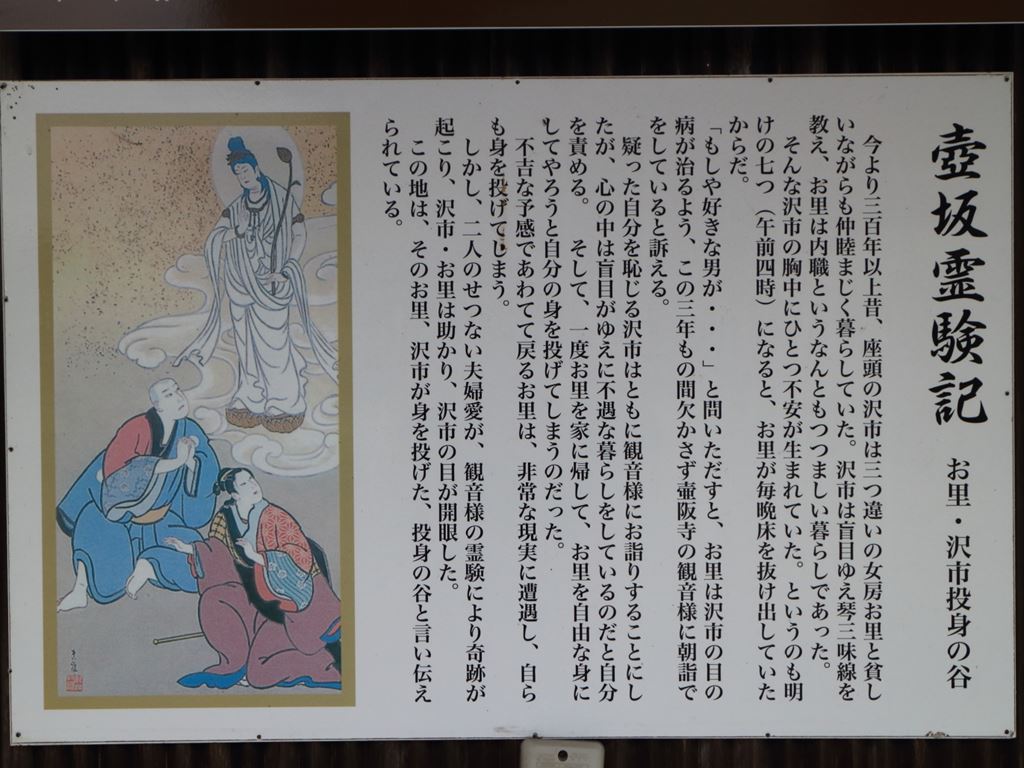 壺坂霊験記
お里・沢市投身の谷
今より三百年以上昔、座頭の沢市は三つ違いの女房お里と貧し
いながらも仲睦まじく暮らしていた。沢市は盲目ゆえ琴三味線を
教え、お里は内職というなんともつつましい暮らしであった。
そんな沢市の胸中にひとつ不安が生まれていた。というのも明
けの七つ（午前四時）になると、お里が毎晩床を抜け出していた
からだ。
「もしや好きな男が・・・」と問いただすと、お里は沢市の目の
病が治るよう、この三年もの間欠かさず壷阪寺の観音様に朝詣で
をしていると訴える。
疑った自分を恥じる沢市はともに観音様にお詣りすることにし
たが、心の中は盲目がゆえに不遇な暮らしをしているのだと自分
を責める。　そして、一度お里を家に帰して、お里を自由な身に
してやろうと自分の身を投げてしまうのだった。
不吉な予感であわてて戻るお里は、非常な現実に遭遇し、自ら
も身を投げてしまう。
しかし、二人のせつない夫婦愛が、観音様の霊験により奇跡が
起こり、沢市・お里は助かり、沢市の目が開眼した。
この地は、そのお里、沢市が身を投げた、投身の谷と言い伝え
られている。